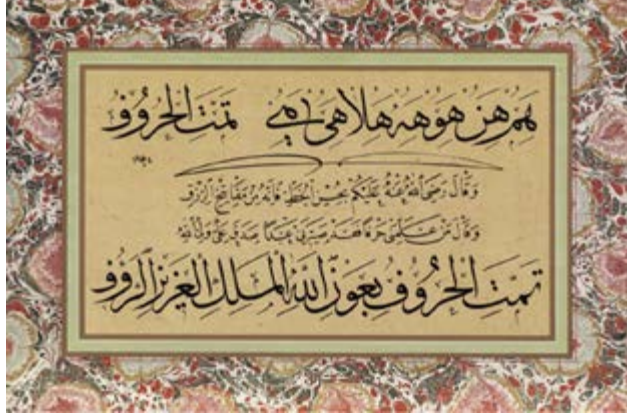 هم هن هو هه هلا هى ى تمت الحروف
وقال رضى الله عنه عليكم بحسن الخط فانه من مفاتيح الرزق
وقال من علمنى حرفا فقد صيرنى عبدا صدق على ولى الله
تمت الحروف بعون الله الملك العزيز الرؤف